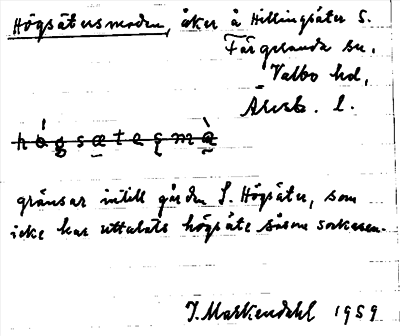 Högsätersmaden, åker å Hillingsäter S.
Färgelanda sn.
Valbo hd,
Älvsb. l.
högsætesmà
gränsar intill gården S. Högsäter, som
icke har uttalats högsäte såsom socknen.
J. Markendahl 1959